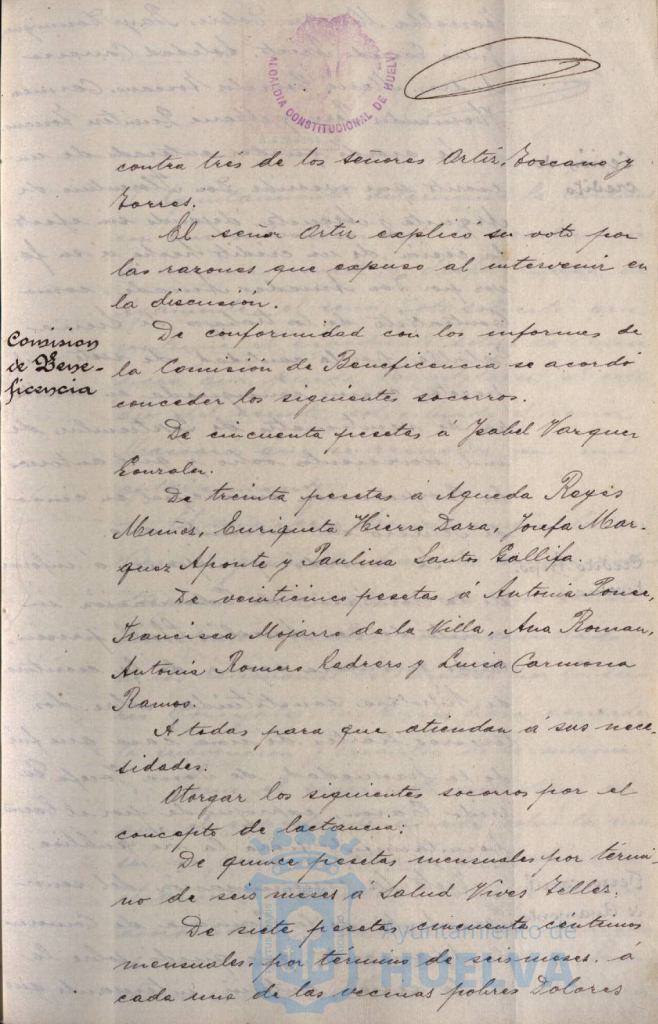 ALCALDIA CONSTITUCIONAL DE HUELVA
contra tres de los señores Ortiz, Toscano y
Torres.
El señor Ortiz explicó su voto por
las razones que expuso al intervenir en
la discusión.
Comision
de Bene-
ficencia
De conformidad con los informes de
la Comisión de Beneficencia se acordó
conceder los siguientes socorros.
De cincuenta pesetas á Isabel Vazquez
Gonzalez.
De treinta pesetas á Agueda Reyes
Muñoz, Enriqueta Hierro Daza, Josefa Mar-
quez Aponte y Paulina Santos Gallifa.
De veinticinco pesetas á Antonia Ponce,
Francisca Mojarro de la Villa, Ana Roman,
Antonia Romero y Luisa Carmona
Ramos.
A todas para que atiendan á sus nece-
sidades.
Otorgar los siguientes socorros por el
concepto de lactancia:
De quince pesetas mensuales por térmi-
no de seis meses á Salud Vives Teller.
De siete pesetas cincuenta céntimos
mensuales, por término de seis meses, á
cada una de las vecinas pobres Dolores
Ayuntamiento de
HUELVA